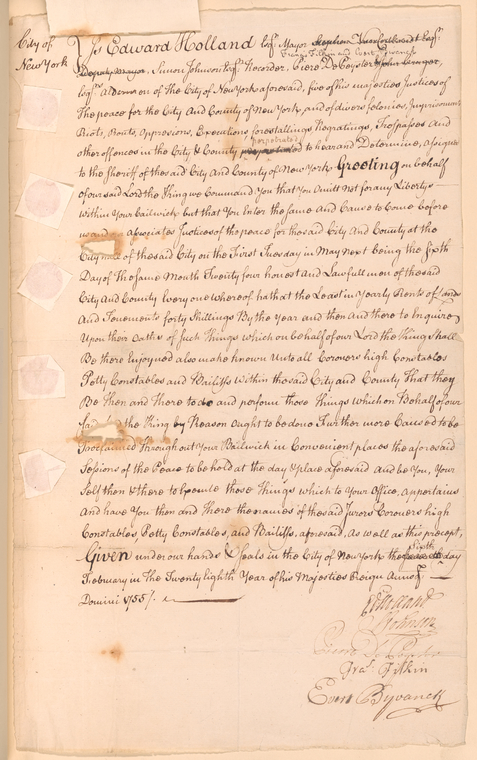 City of
New York
Edward Holland Esqr. Mayor Stephen Esqr.
Francis Filkin and Evert Byvanck
Deputy Mayor, Simon Johnson Esqr. Recorder, Pierre De Peyster John
Esqrs. Aldermen of The City of New York aforesaid, five of his majesties Justices of
The peace for the City And County of New York, and of divers Felonies, Imprisonment
Riots, Routs, Oppressions, Extortions, forestallings Regratings, Trespasses And
perpetrated
other offences in the City & County to hear and Determine, assigned
to the Sheriff of the said City And County of New York Greeting on behalf
of our said Lord the King we Command You that You Omitt not for any Libertys
Within Your Bailwick but that You Enter the Same And Cause to Come before
us and associates Justices of the peace for the said City And County at the
City Hall of the said City on the First Tuesday in May Next being the Sixth
Day of the Same Month Twenty four honest And Lawfull men of the said
City And County Every one whereof hath at the Least in Yearly Rents of Lands
And Tenements forty Shillings By the Year and then And there to Inquire
Upon their Oaths of Such Things which on behalf of our Lord the King Shall
Be there Enjoyned also make known Unto all Coroners high Constables
Petty Constables and Bailiffs Within the said City and County That they
Be then and There to do and perform those Things which on Behalf of our
the King by Reason Ought to be done Further more Caused to be
Proclaimed throughout Your Bailwick in Convenient places the aforesaid
Sessions of the Peace to be held at the day & place aforesaid And be You, Your
Self then & there to Execute those Things which to Your Office, appertains
And have You then And there the names of the said Jurors Coroners high
Constables, Petty Constables, and Bailiffs, aforesaid, As well as this precept,
Sixth
Given under our hands & Seals in the City of New York the day
February in The Twenty Eighth Year of his Majesties Reign Annoq
Domini 1755/.
E Holland
S Johnson
Pierre De Peyster
Fras. Filkin
Evert Byvanck